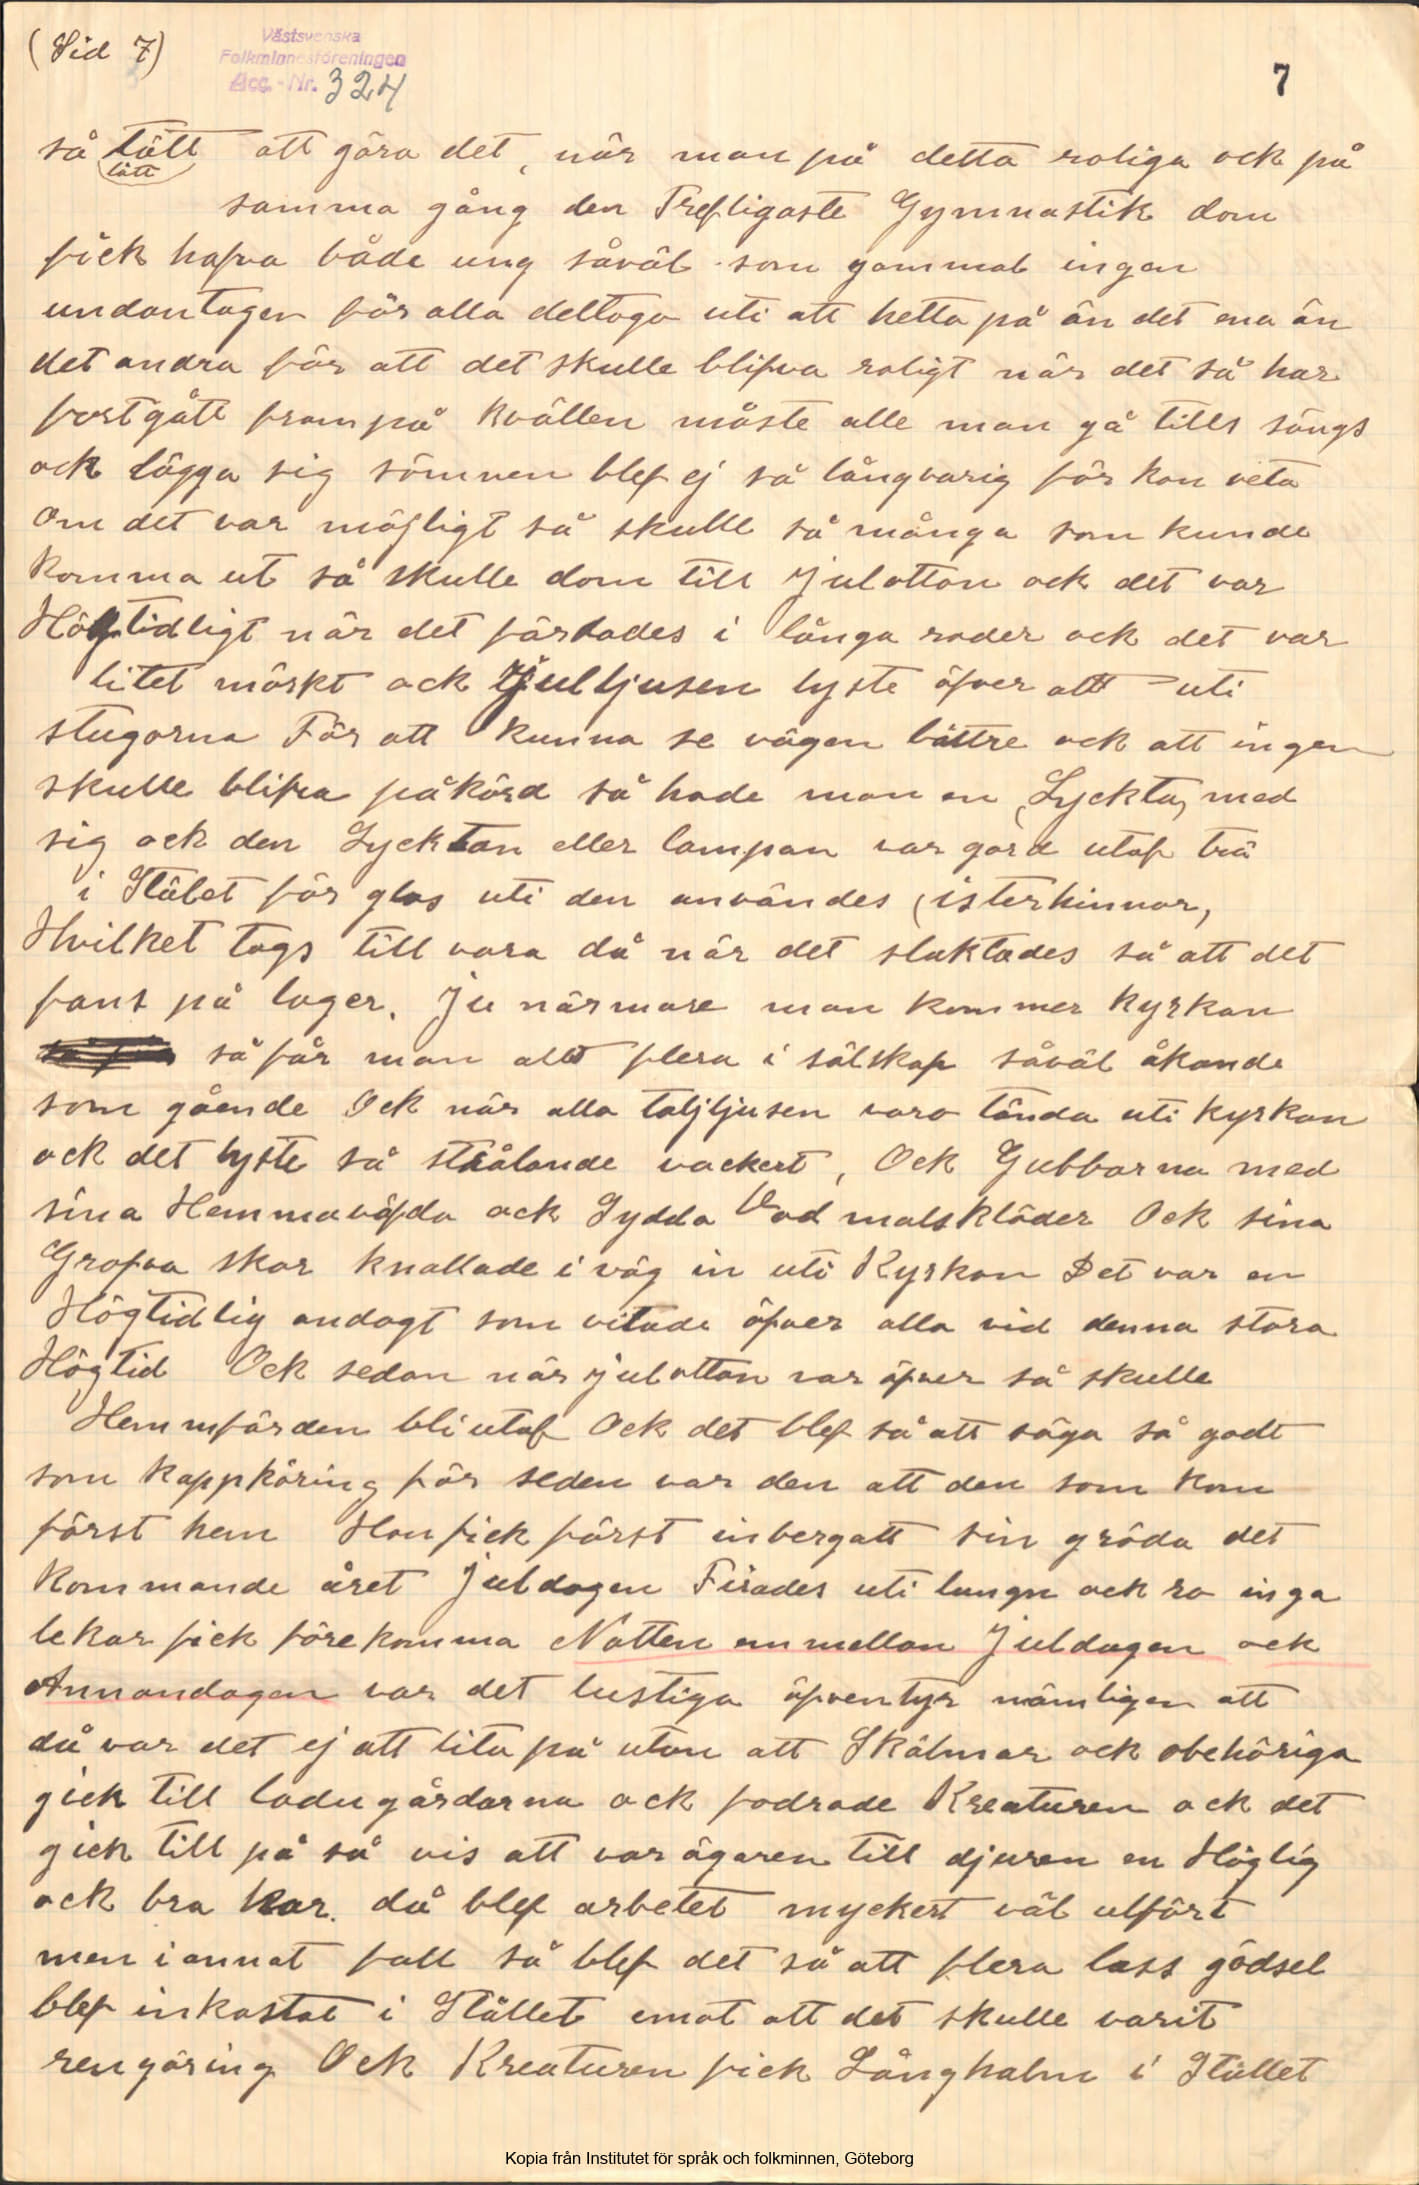 (Sid 7)
Västsvenska
Folkminnesföreningen
Acc.-Nr. 324
7
så lätt att göra det, när man på detta roliga ock på
lätt
samma gång den Trefligaste Gymnastik dom
fick hafva både ung såväl som gammal ingen
undantagen för alla deltogo uti att hetta på än det ena än
det andra för att det skulle blifva roligt när det så har
fortgått fram på kvällen måste alle man gå tills sängs
ock lägga sig sömnen blef ej så långvarig för kan veta
om det var möjligt så skulle så många som kunde
komma ut så skulle dom till julottan ock det var
Högtidligt när det färdades i långa rader ock det var
litet mörkt ock Julljusen lyste öfver allt uti
stugorna För att kunna se vägen bättre ock att ingen
skulle blifva påkörd så hade man en (Lyckta) med
sig ock den Lycktan eller lampan var gord utaf trä
i Stälet för glas uti den användes (isterhinnor,
Hvilket togs till vara då när det slaktades så att det
fans på lager. Ju närmare man kommer kyrkan
så får man allt flera i sälskap såväl åkande
som gående Ock när alla taljljusen voro tända uti kyrkan
ock det lyste så strålande vackert, Ock Gubbarna med
sina Hemmaväfda ock Sydda Vadmalskläder Ock sina
Grofva skor knallade i väg in uti Kyrkan Det var en
Högtidlig andagt som vilade öfver alla vid denna stora
Högtid Ock sedan när julottan var öfver så skulle
Hemmfärden bli utaf Ock det blef så att säga så godt
som kappköring för seden var den att den som kom
först hem Han fick först inbergatt sin gröda det
kommande året Juldagen Firades uti lungn ock ro inga
lekar fick förekomma Natten emmellan Juldagen ock
Annandagen var det lustiga äfventyr nämligen att
då var det ej att lita på utan att Skälmar ock obehöriga
gick till ladugårdarna ock fodrade Kreaturen ock det
gick till på så vis att var ägaren till djuren en Höglig
ock bra kar. då blef arbetet myckert väl utfört
men i annat fall så blef det så att flera lass gödsel
blef inkastat i Stället emot att det skulle varit
rengöring Ock Kreaturen fick Långhalm i Stället
Kopia från Institutet för språk och folkminnen, Göteborg